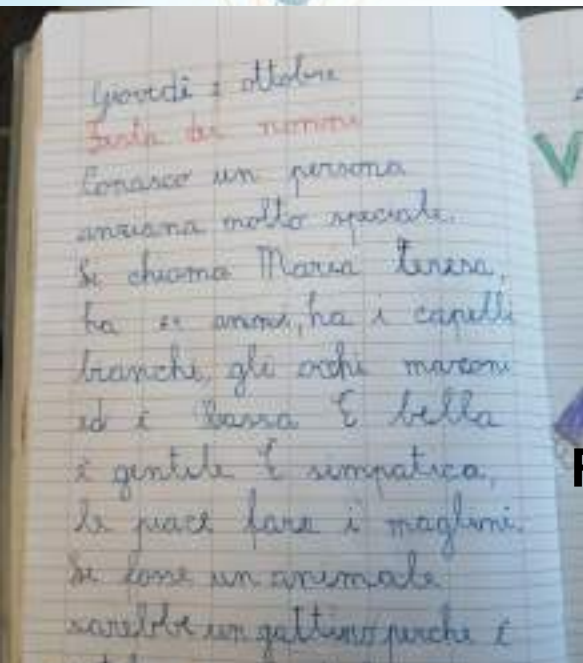 Giovedì 1 ottobre
Festa dei nonni
Conosco un persona
anziana molto speciale.
Si chiama Maria Teresa,
ha anni, ha i capelli
bianchi, gli occhi marroni
ed è bassa È bella
è gentile È simpatica,
le piace fare i maglioni.
Se fosse un animale
sarebbe un gattino perché è